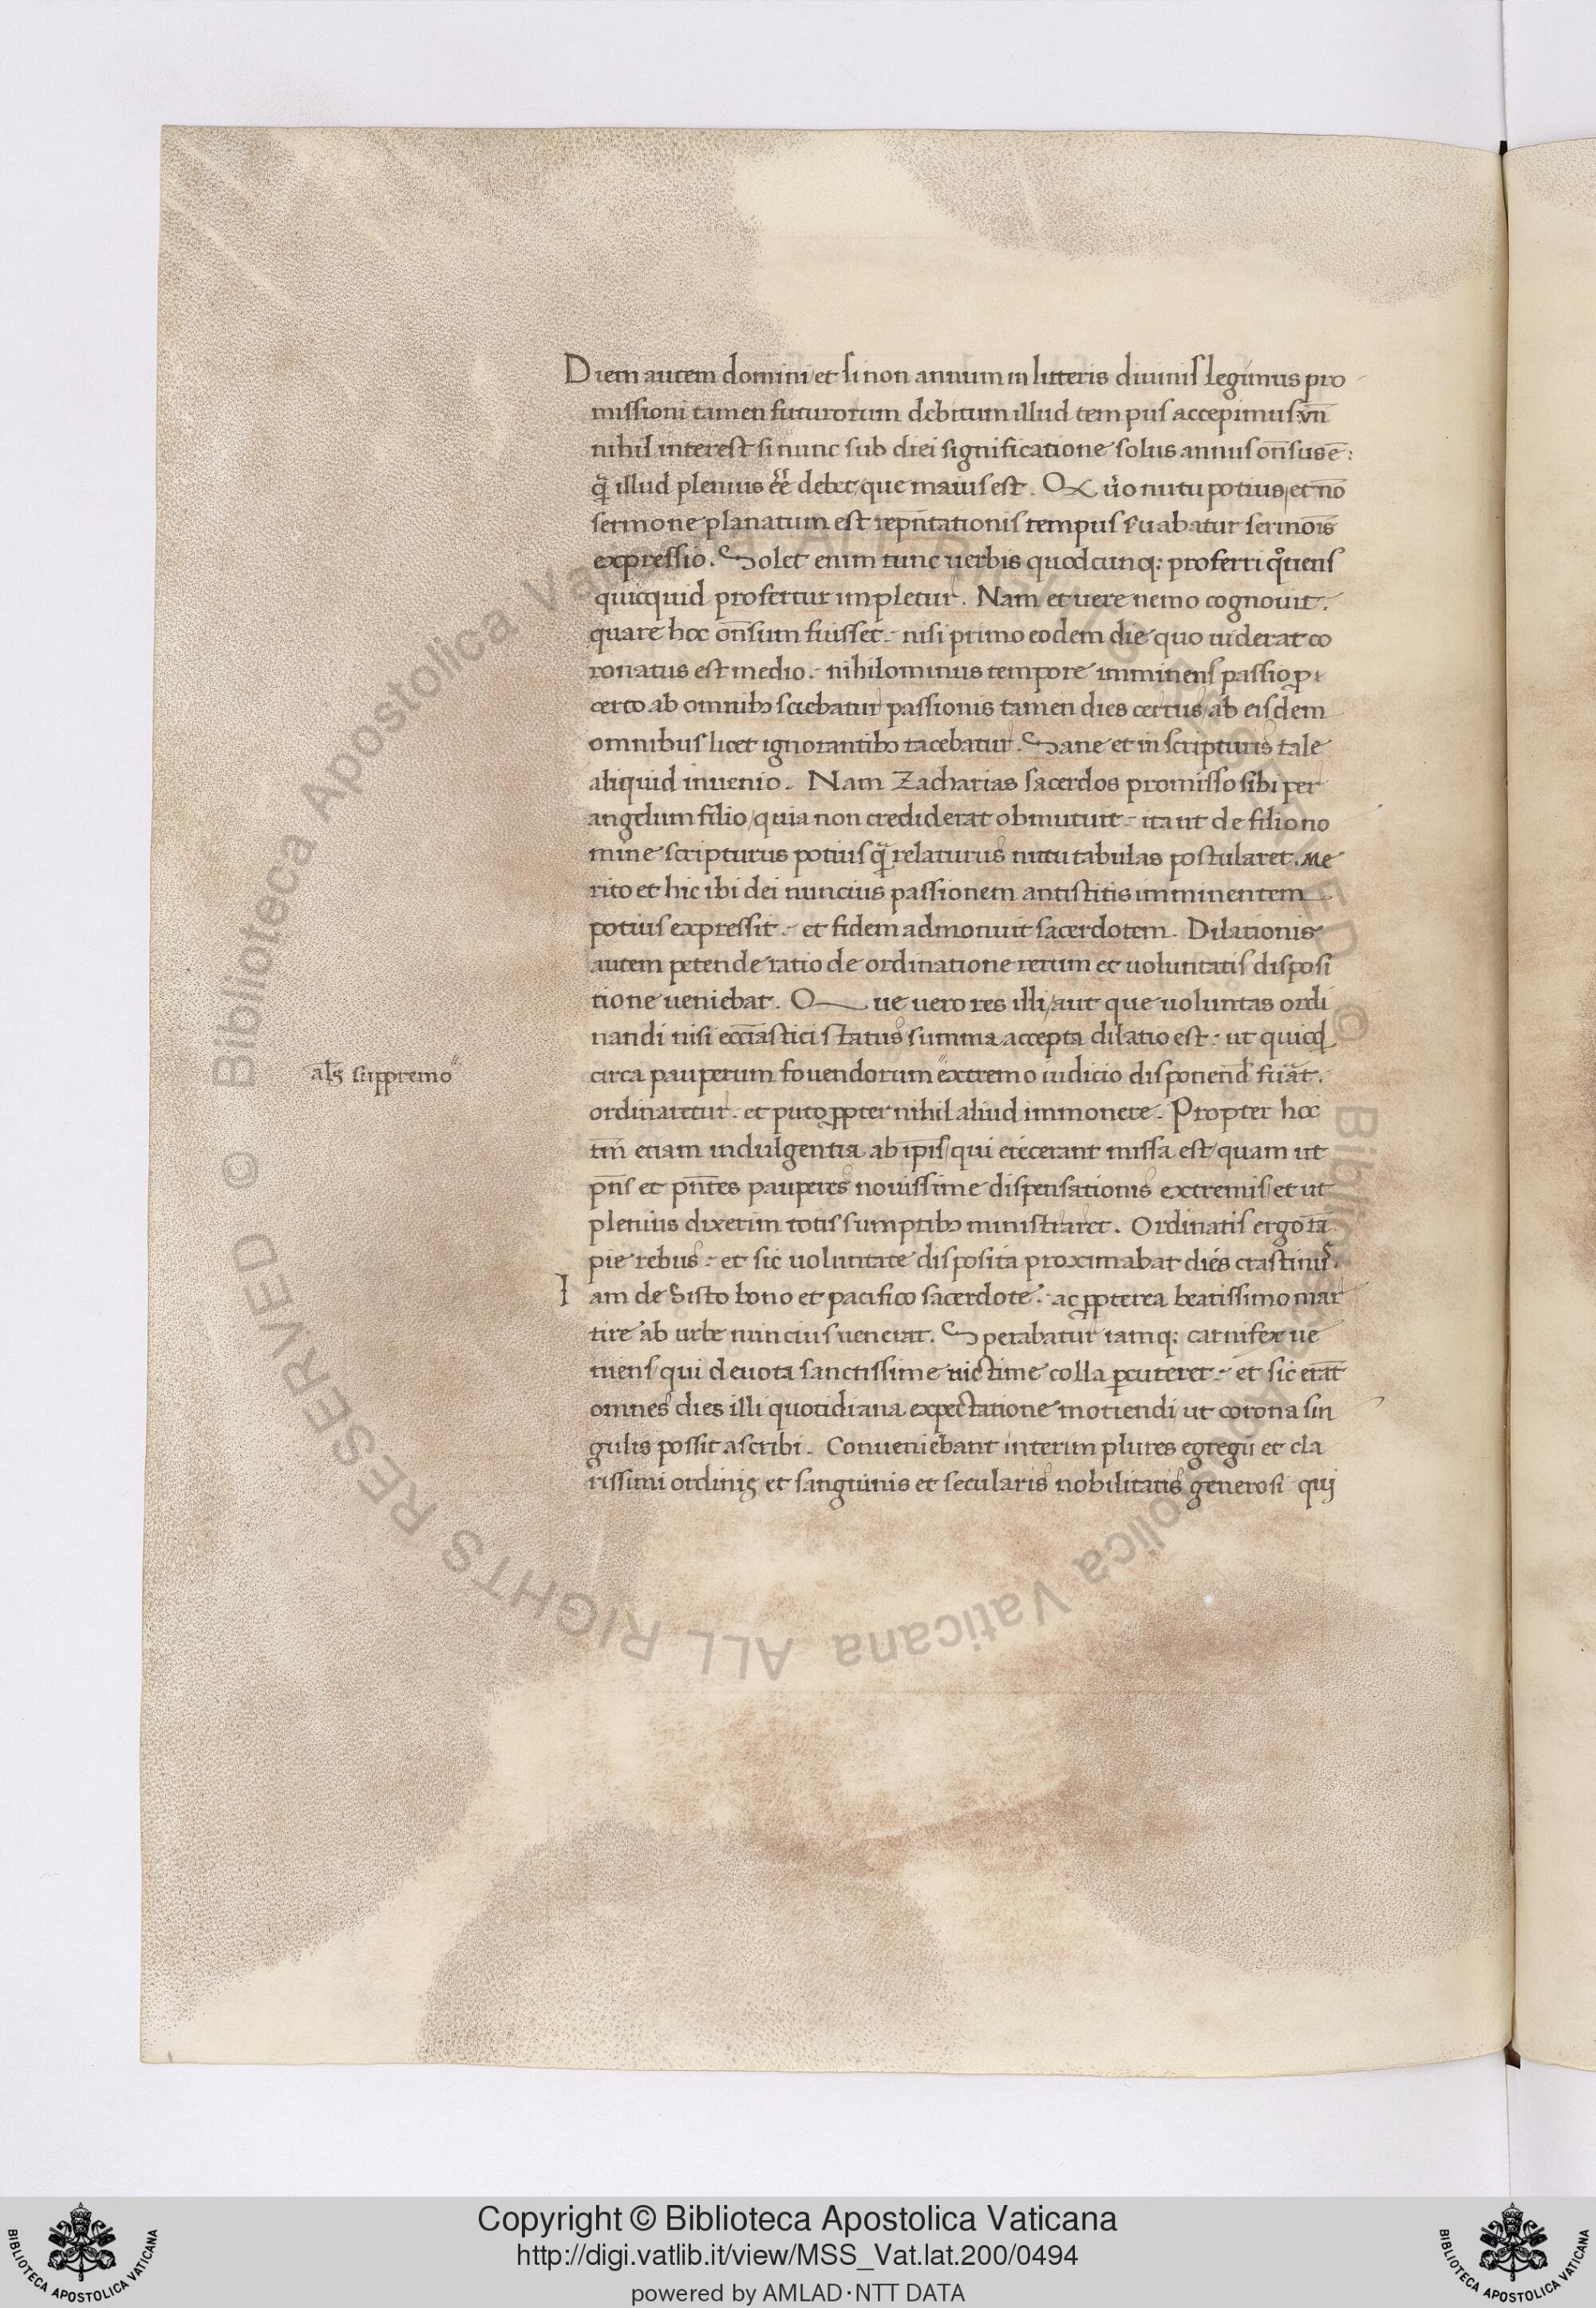 Diem autem domini / et si non annum in litteris diuinis legimus pro
missioni tamen futurorum debitum illud tempus accepimus: vn̄
nihil interest si nunc sub diei significatione solus annus on̄sus ē:
q̄ illud plenius ēē debet / que maius est. Qvo nutu potius / et nō
sermone planatum est repn̄tationis tempus suabatur sermōis
expressio. Solet enim tunc uerbis quodcunq: proferri qͦtiens
quicquid profertur impletur. Nam et uere nemo cognouit.
quare hoc on̄sum fuisset. nisi primo eodem die quo uiderat co
ronatus est medio. nihilominus tempore imminens passio p̱
certo ab omnibꝫ sciebatur passionis tamen dies certus / ab eisdem
omnibus licet ignorantibꝫ tacebatur. Sane et in scripturis tale
aliquid inuenio. Nam Zacharias sacerdos promisso sibi per
angelum filio / quia non crediderat obmutuit. ita ut de filio no
mine scripturus potius q̄ relaturus nutu tabulas postularet. Me
rito et hic ibi dei nuncius passionem antistitis imminentem
potius expressit. et fidem admonuit sacerdotem. Dilationis
autem petende ratio de ordinatione rerum et uoluntatis disposi
tione ueniebat. Que uero res illi / aut que uoluntas ordi
nandi nisi ecc̄iastici status summa accepta dilatio est. ut quicq̄
circa pauperum fouendorum extremo iudicio disponend̄ fu͛at.
ordinaretur. et puto ꝓpter nihil aliud immonere. Propter hoc
tm̄ etiam indulgentia ab ip̄is / qui eiecerant missa est / quam ut
pn̄s et pn̄tes pauperes nouissime dispensationis extremis / et ut
plenius dixerim totis sumptibꝫ ministraret. Ordinatis ergo tā
pie rebus. et sic uoluntate disposita proximabat dies crastinus.
Iam de Sisto bono et pacifico sacerdote. ac ꝓpterea beatissimo mar
tire ab urbe nuncius uenerat. Sperabatur iamq: carnifex ue
niens / qui deuota sanctissime uictime colla ꝑcuteret. et sic erāt
omnes dies illi quotidiana expectatione moriendi / ut corona sin
gulis possit ascribi. Conueniebant interim plures egregii et cla
rissimi ordinis et sanguinis et secularis nobilitatis generosi qui
al̄s suppremo
© Biblioteca Apostolica Vaticana ALL RIGHTS RESERVED
Copyright © Biblioteca Apostolica Vaticana
http://digi.vatlib.it/view/MSS_Vat.lat.200/0494
powered by AMLAD·NTT DATA
BIBLIOTECA APOSTOLICA VATICANA
BIBLIOTECA APOSTOLICA VATICANA